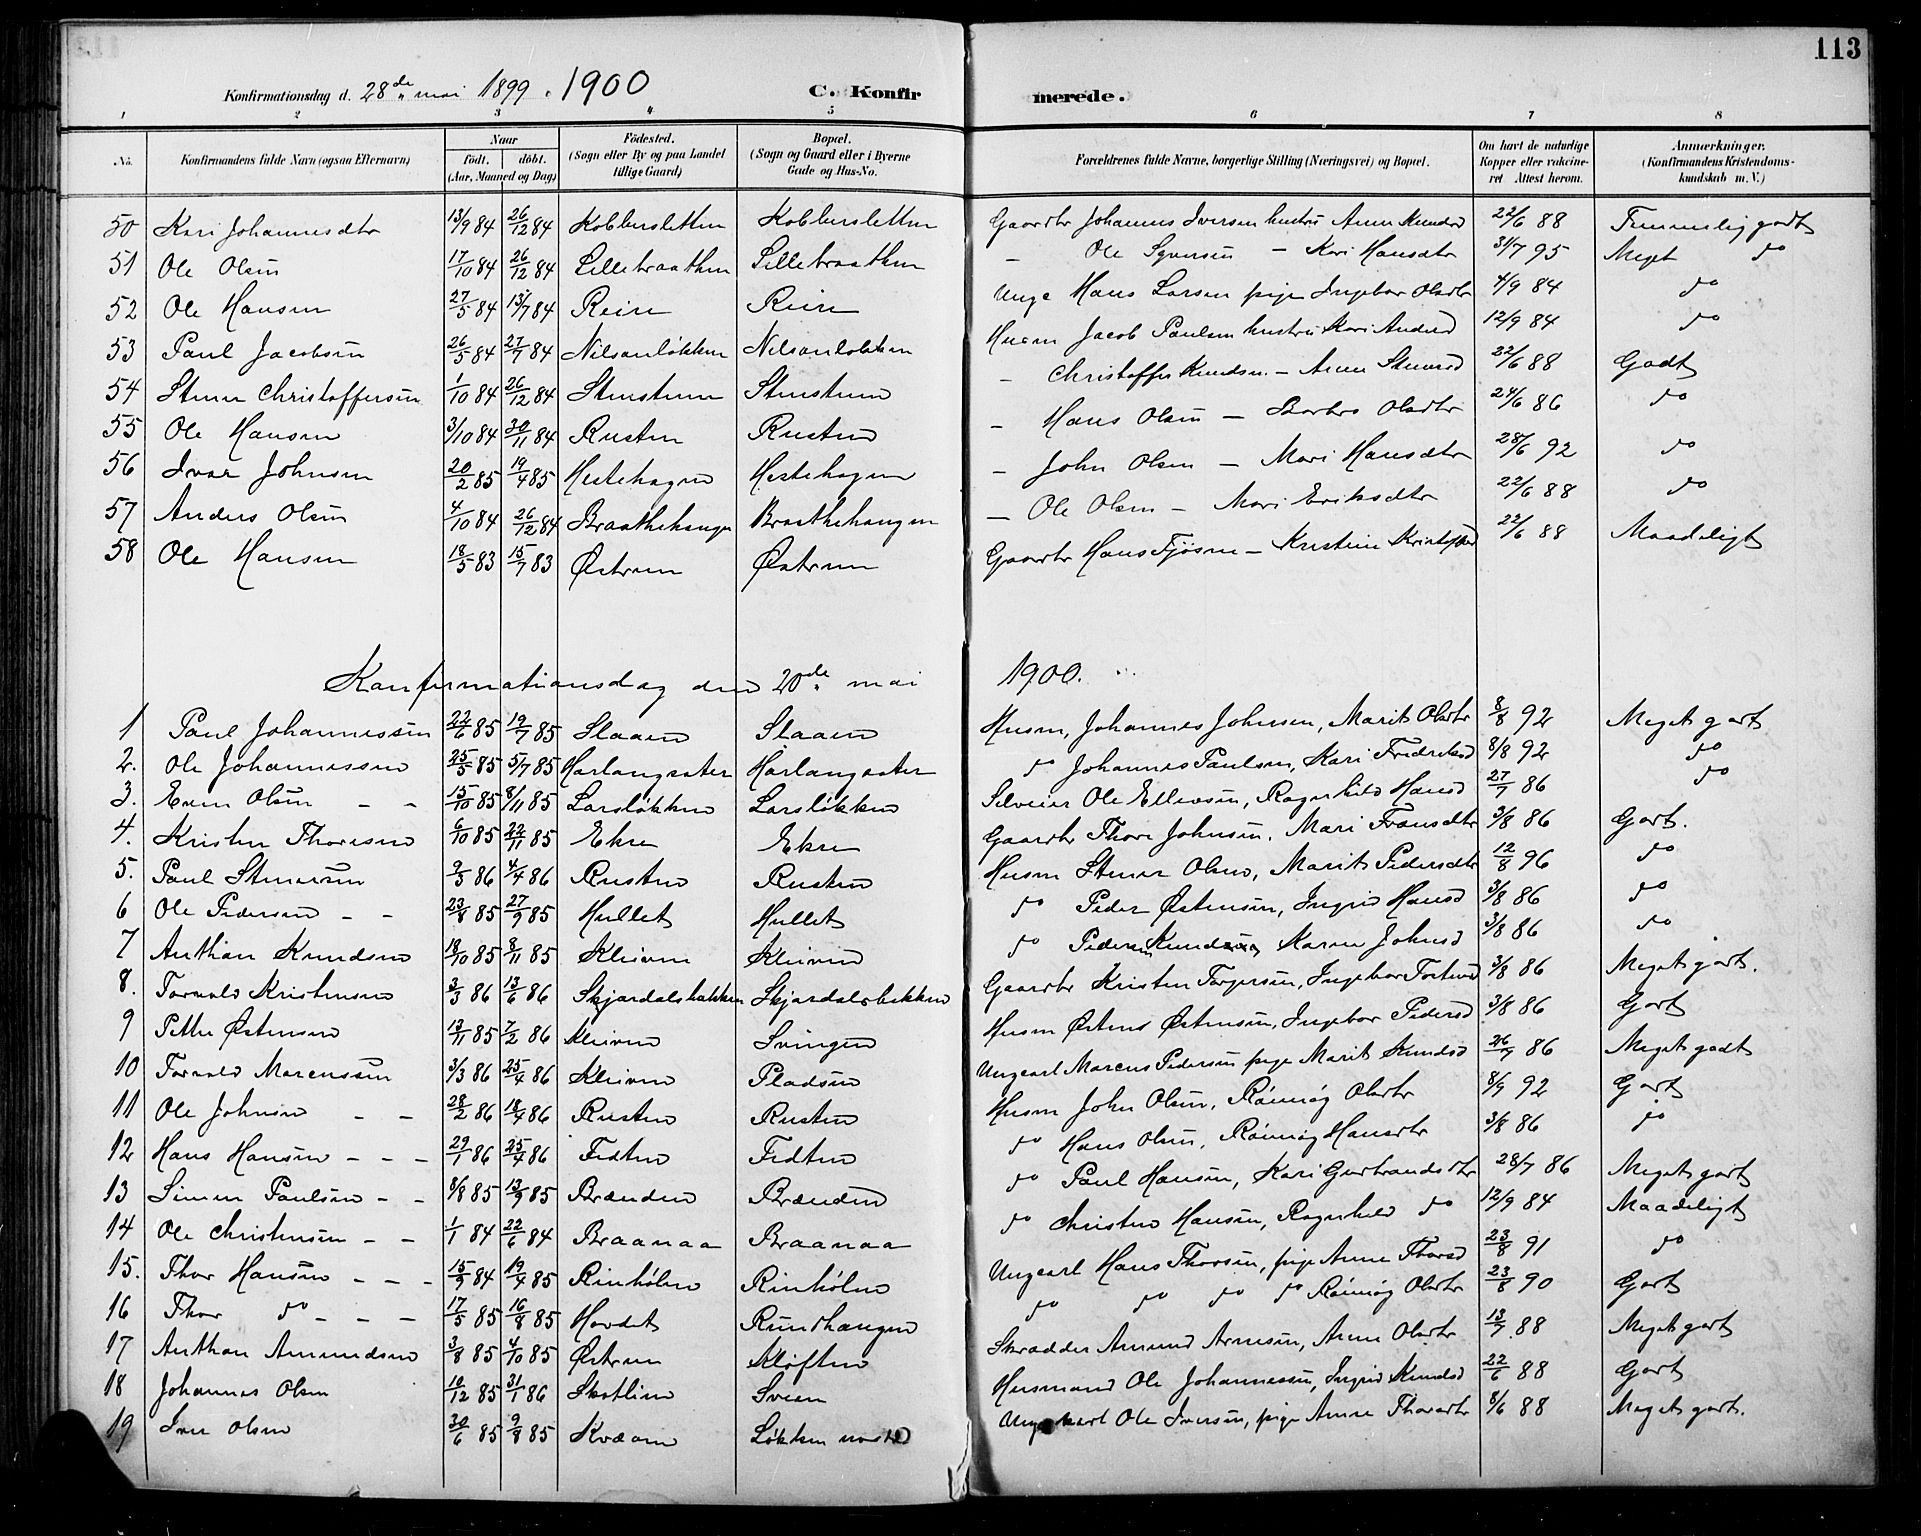 113
Konfirmationsdag d. 28de mai 1899. 1900 C. Konfirmerede.
1 2 3 4 5 6 7 8
No. Konfirmandens fulde Navn (ogsaa Efternavn) Naar födt. döbt. (Aar, Maaned og Dag) Födested. (Sogn eller By og paa Landet tillige Gaard) Bopæl. (Sogn og Gaard eller i Byerne Gade og Hus-No. Forældrenes fulde Navne, borgerlige Stilling (Næringsvei) og Bopæl. Om havt de naturlige Kopper eller vakcineret Attest herom. Anmærkninger. (Konfirmandens Kristendomskundskab m. V.)
50 Kari Johannesdtr 13/9 84 26/12 84 Kobbersletten Kobbersletten Gaardbr Johannes Iversen hustru Anne Knudsd 22/6 88 Temmelig godt
51 Ole Olsen 17/10 84 26/12 84 Lillebraathen Lillebraathen - Ole Syversen - Kari Hansdtr 31/7 95 Meget do
52 Ole Hansen 27/5 84 13/7 84 Reire Reire Unge Hans Larsen pige Ingebor Olsdtr 4/9 84 do
53 Paul Jacobsen 26/5 84 27/7 84 Nilsonløkken Nilsonløkken Husm Jacob Paulsen hustru Kari Andersd 12/9 84 do
54 Stener Christoffersen 1/10 84 26/12 84 Stenstrum Stenstrum - Christoffer Knudsen - Anne Stenersd 22/6 88 Godt
55 Ole Hansen 3/10 84 30/11 84 Rusten Rusten - Hans Olsen - Barbro Olsdtr 24/6 86 do
56 Ivar Johnsen 20/2 85 19/4 85 Hestehagen Hestehagen - John Olsen - Mari Hansdtr 28/6 92 do
57 Anders Olsen 4/10 84 26/12 84 Braathehaugen Braathehaugen - Ole Olsen - Mari Eriksdtr 22/6 88 do
58 Ole Hansen 18/5 83 15/7 83 Østrem Østrem Gaardbr Hans Fjøsne - Kristine Kristoffersd 22/6 88 Maadeligt
Konfirmationsdag den 20de mai 1900.
1 Paul Johannessen 22/6 85 19/7 85 Slaaen Slaaen Husm, Johannes Johnsen, Marit Olsdtr 8/8 92 Meget godt
2. Ole Johannessen 25/5 85 5/7 85 Harlangsæter Harlangsæter do Johannes Paulsen, Kari Fredriksd 8/8 92 do
3. Even Olsen - - 15/10 85 8/11 85 Larsløkken Larsløkken Selveier Ole Ellevsen, Ragnhild Hansd 27/7 86 do
4. Kristen Thoresen 6/10 85 22/11 85 Ekre Ekre Gaardbr Thore Johnsen, Mari Fransdtr 3/8 86 Godt.
5. Paul Stenersen 9/3 86 4/4 86 Rusten Rusten Husm Stener Olsen, Marit Pedersdtr 12/8 96 do
6 Ole Pedersen - - 23/8 85 27/9 85 Hullet Hullet do Peder Østensen, Ingrid Hansd 3/8 86 do
7 Anthon Knudsen 18/10 85 8/11 85 Kleiven Kleiven do Pedersen Knud Karen Johnsd 3/8 86 do
8. Torvald Kristensen 3/3 86 13/6 86 Skjærdalsbakken Skjærdalsbakken Gaardbr Kristen Torgersen, Ingebor Torstensd 3/8 86 Meget godt.
9 Petter Østensen 13/11 85 7/2 86 Kleiven Svingen Husm Østens Østensen, Ingebor Pedersd 3/8 86 Godt
10 Torvald Marcussen 3/3 86 25/4 86 Kleiven Pladsen Ungcarl Marcus Pedersen pige Marit Knudsd 26/7 86 Meget godt
11 Ole Johnsen - - 28/2 86 18/4 86 Rusten Rusten Husm John Olsen, Rønnøg Olsdtr 8/9 92 Godt
12 Hans Hansen - - - 29/1 86 25/4 86 Fedten Fedten do Hans Olsen, Rønnøg Hansdtr 3/8 86 do
13 Simen Paulsen - - 8/8 85 13/9 85 Brænden Brænden do Paul Hansen, Kari Gurbrandsdtr 28/7 86 Meget godt
14 Ole Christensen - - 1/1 84 22/6 84 Braanaa Braanaa do Christen Hansen, Ragnhild do 12/9 84 Maadeligt
15. Thor Hansen - - - 15/9 84 19/4 85 Rinhølen Rinhølen Ungcarl Hans Thorsen, pige Anne Thorsd 23/8 91 do
16 Thor do - - - 17/5 85 16/8 85 Hovdet Rundhaugen do do do do Rønnøg Olsdtr 23/8 90 Godt
17 Anthon Amundsen 3/8 85 4/10 85 Østrem Kløften Skrædder Amund Arnesen, Anne Olsdtr 13/7 88 Meget godt
18 Johannes Olsen 10/12 85 31/1 86 Skotlien Sveen Husmand Ole Johannessen, Ingrid Knudsd 22/6 88 Godt
19 Iver Olsen 30/6 85 9/8 85 Kvæom Løkken nordre Ungkarl Ole Iversen, pige Anne Thorsdtr 8/6 88 Meget godt.